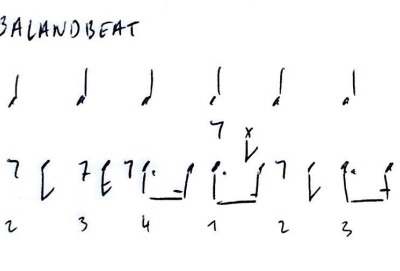 BALANDBEAT
2 3 4 1 2 3